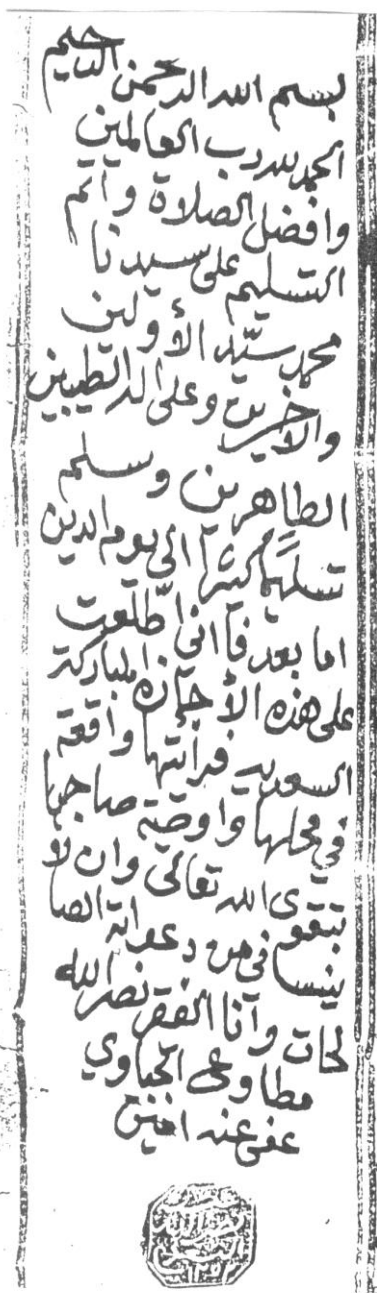 بسم الله الرحمن الرحيم
الحمد لله رب العالمين
وافضل الصلاة وأتم
التسليم على سيدنا
محمد سيّد الأولين
والآخرين وعلى اله الطيبين
الطاهرين وسلم
تسليماً كثيرا الى يوم الدين
اما بعد فأني اطّلعت
على هذه الأجازه المباركة
السعديه فرأيتها واقعة
في محلها واوصية صاحبها
بتقوى الله تعالى وان لا
ينساني من دعواته الصا
لحات وأنا الفقير نصر الله
مطاوعى الحياوي
عفى عنه امين